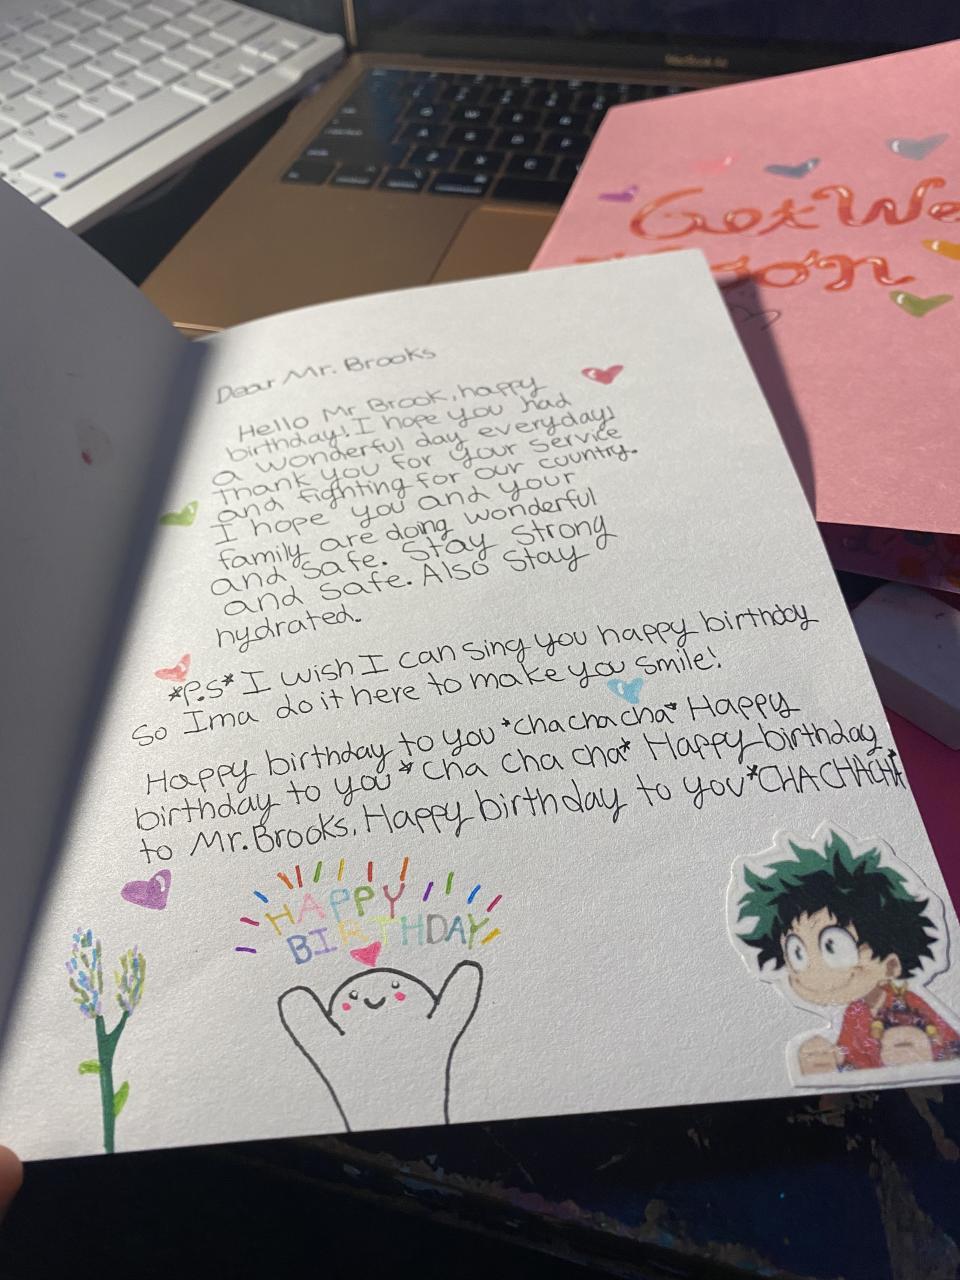 MacBook Air
Get We
Soon
Dear Mr. Brooks
Hello Mr Brook, happy
birthday! I hope you had
a wonderful day everyday!
Thank you for your service
and fighting for our country.
I hope you and your
family are doing wonderful
and safe. Stay Strong
and safe. Also stay
hydrated.
*P.s* I wish I can sing you happy birthday
So Ima do it here to make you smile!
Happy birthday to you *cha cha cha* Happy
birthday to you *cha cha cha* Happy birthday
to Mr. Brooks. Happy birthday to you *CHA CHA CHA*
HAPPY
BIRTHDAY